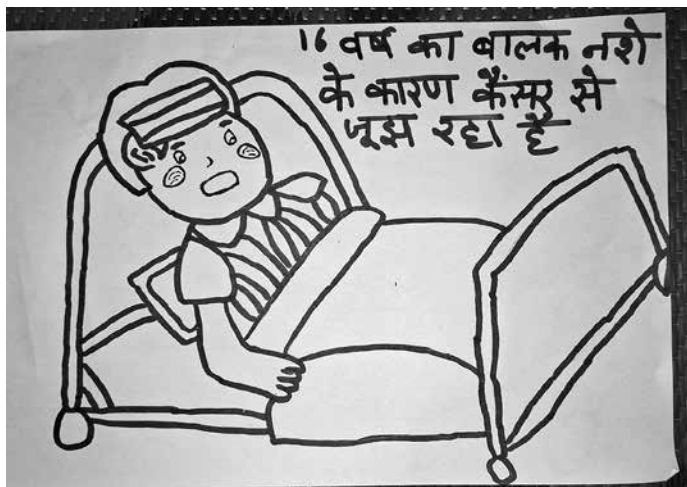 16 वर्ष का बालक नशे
के कारण कैंसर से
जूझ रहा है